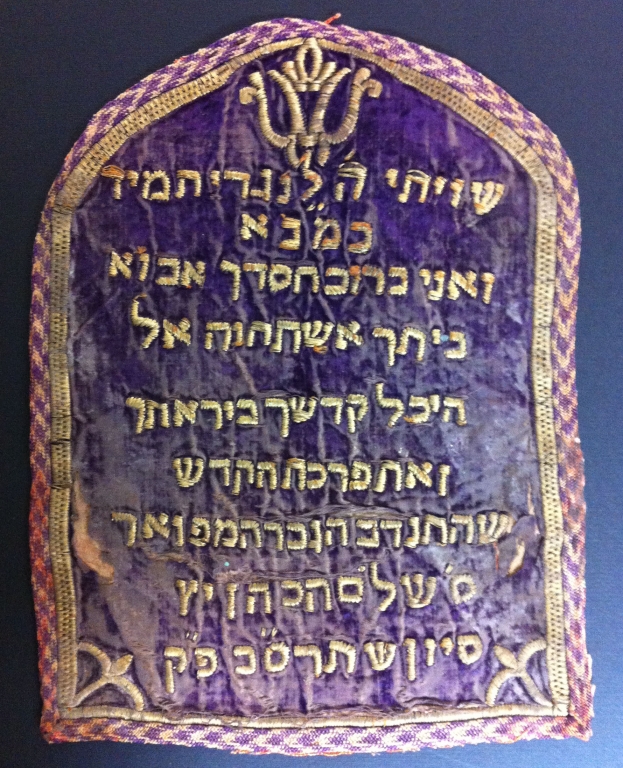 שויתי ה' לנגדי תמיד
ואני ברוב חסדך אבוא
ביתך אשתחוה אל
היכל קדשך ביראתך
זאת פרכת הקדש
שהתנדב הגבר המפואר
ס' שלם הכהן יץ
סיון ש תרס"ב פ"ק